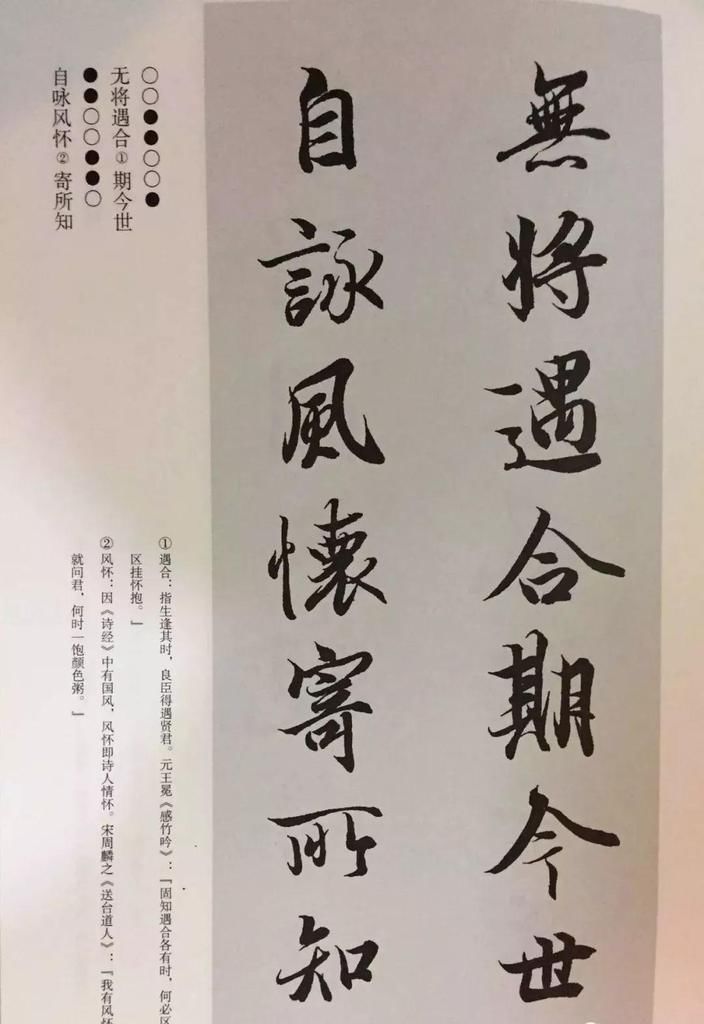 無將遇合期今世
自詠風懷寄所知
○○●●○○●
无将遇合①期今世
●●○○●●○
自咏风怀②寄所知
①遇合：指生逢其时，良臣得遇贤君。元王冕《感竹吟》：「固知遇合各有时，何必区
区挂怀抱。」
②风怀：因《诗经》中有国风，风怀即诗人情怀。宋周麟之《送台道人》：「我有风怀
就问君，何时一饱颜色粥。」